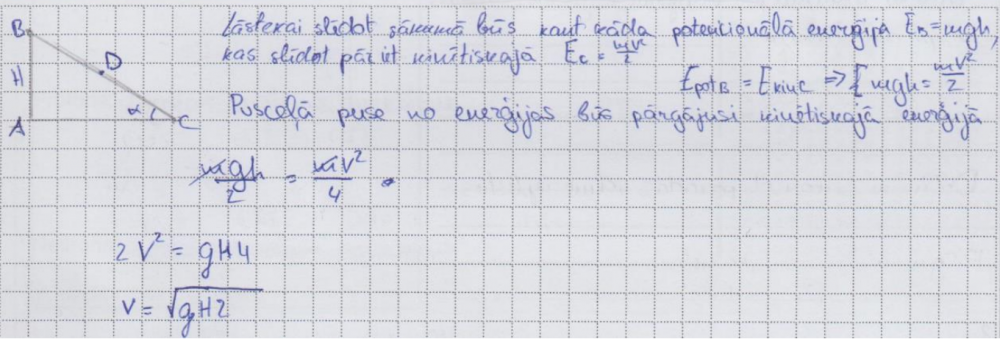 B
H
A
D
α
C
Lāstekai slīdot sākumā būs kaut kāda potenciālā enerģija E_B=mgh,
kas slīdot pāriet kinētiskajā E_C = mv²/2
E_potB = E_kinC => { mgh = mv²/2
Pusceļā puse no enerģijas būs pārgājusi kinētiskajā enerģijā
mgh/2 = mv²/4
2v² = gH4
v = √gH2